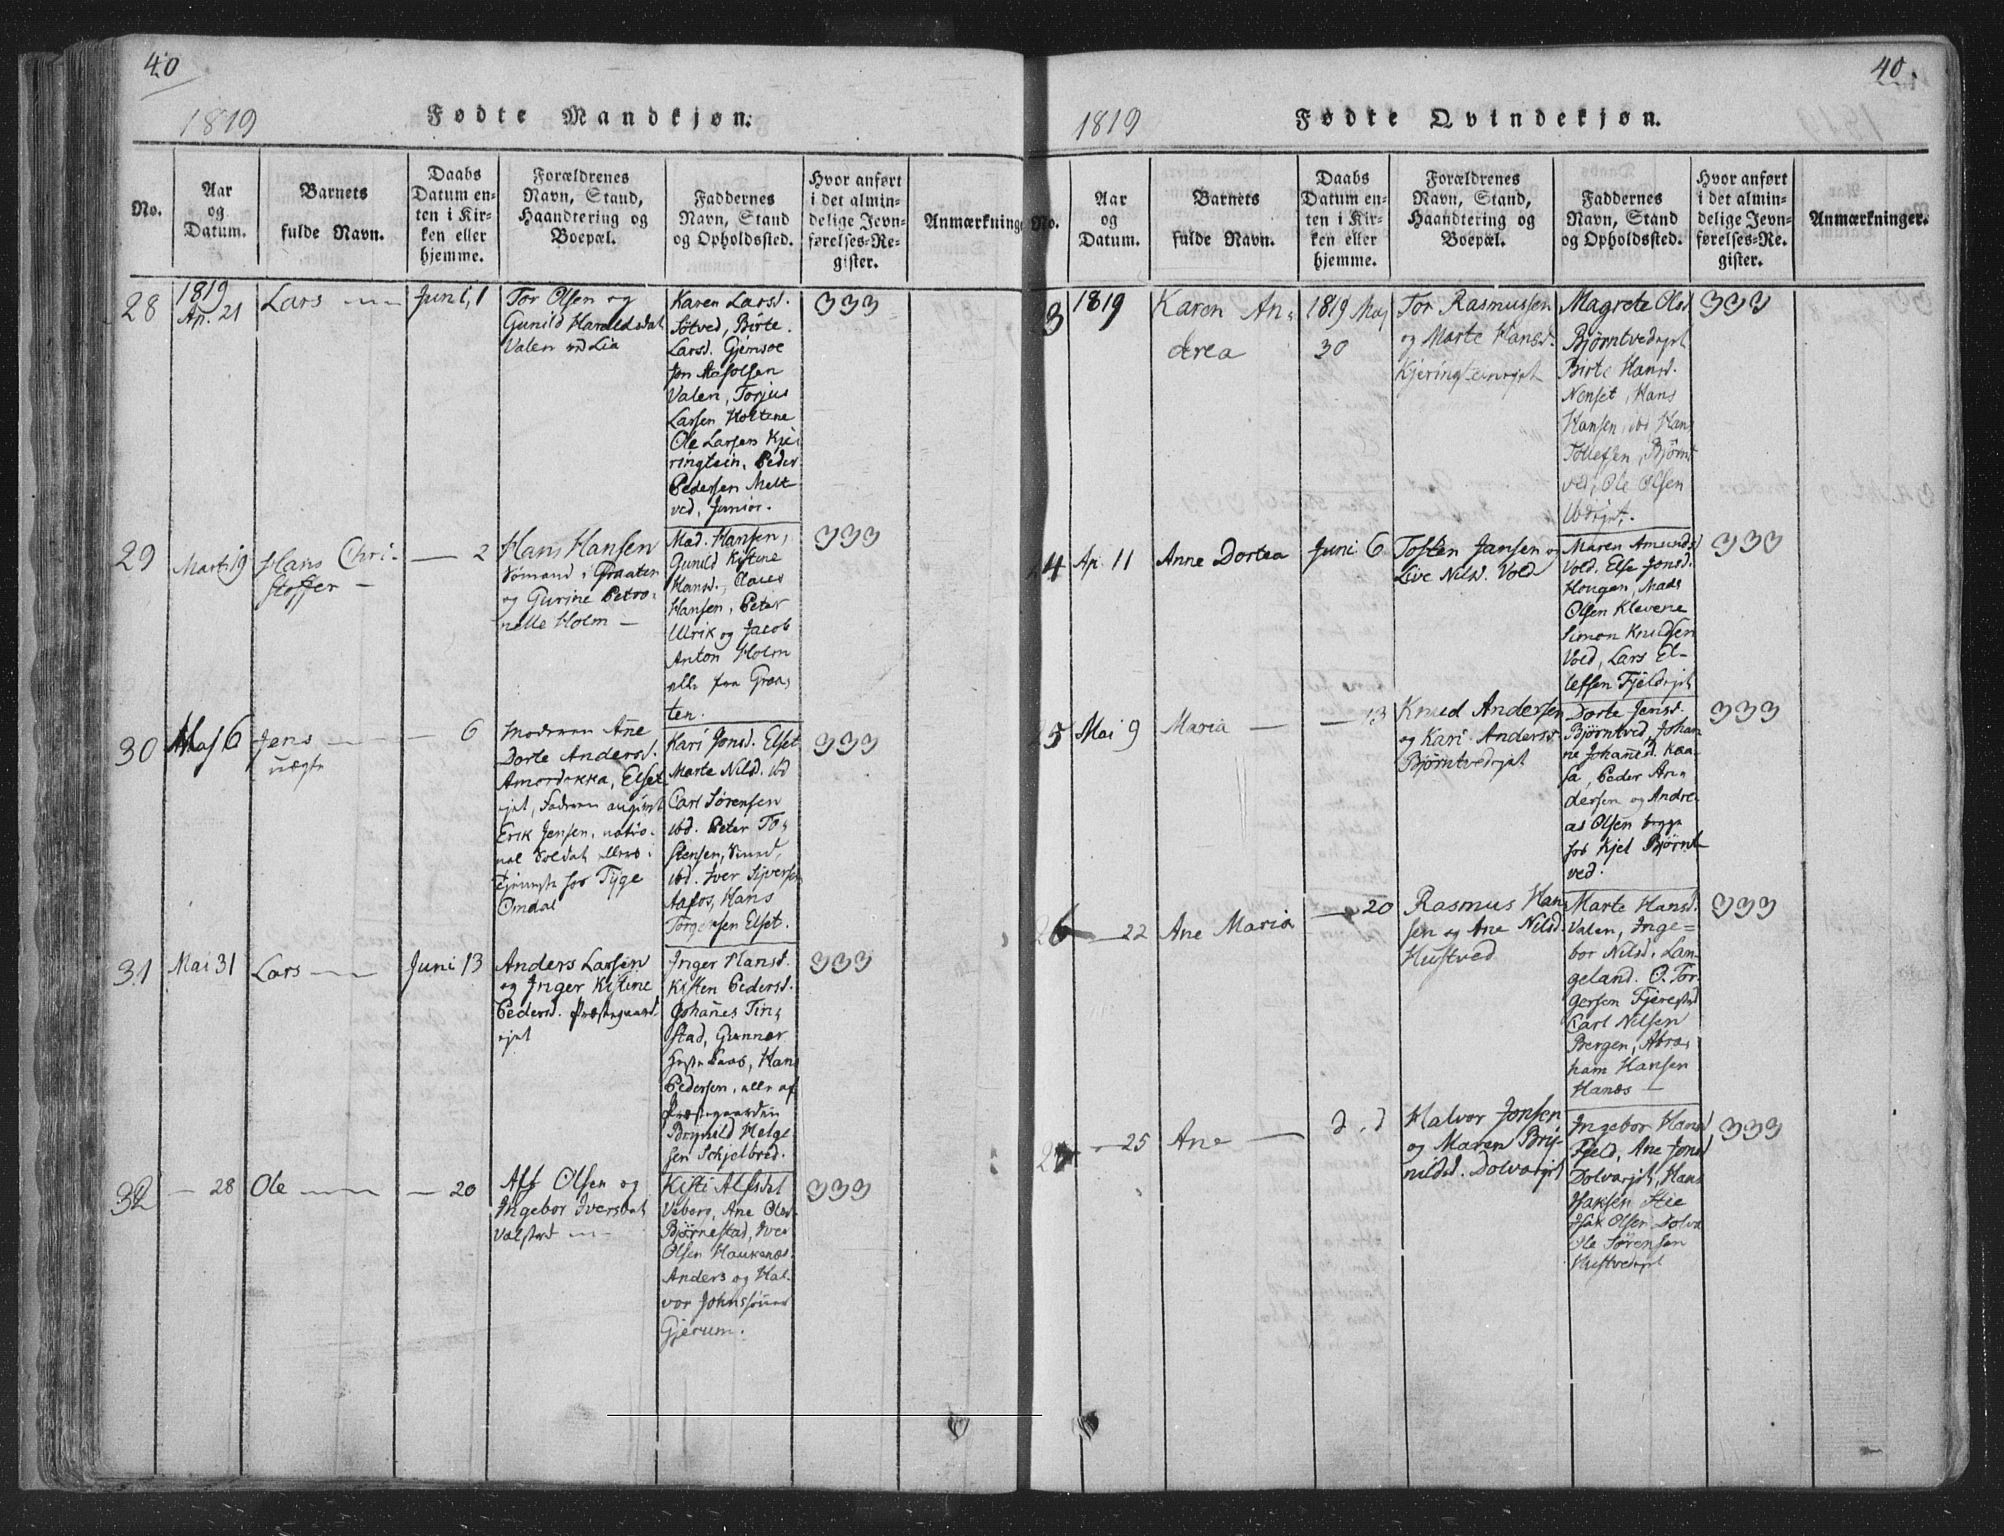 40
1819
Fødte Mandkjøn.
No.
Aar
og
Datum.
Barnets
fulde Navn.
Daabs
Datum en-
ten i Kir-
ken eller
hjemme.
Forældrenes
Navn, Stand,
Haandtering og
Boepæl.
Faddernes
Navn, Stand
og Opholdssted.
Hvor anført
i det almin-
delige Jevn-
førelses-Re-
gister.
Anmærkninge
28
1819
Ap. 21
Lars
Juni, 1
Tor Olsen og
Gunild Haraldsdat
Valen
Lia
Karen Larsd.
Sötved, Birte
Larsd. Gjemsoe
Jon
Valen, Torjus
Larsen Holtene
Ole Larsens Kje-
ringtein, Peder
Pedersen Melt
ved, Junior.
333
29
Marti 19
Hans Chri-
stoffer
2
Hans Hansen
Sömand i Graaten
og Gurine Petro-
nelle Holm
Mad. Hansen,
Gunild Kistine
Hansd., Claus
Hansen, Peter
Ulrik og Jacob
Anton Holm
alle fra Graa-
ten.
333
30
Maj 6
Jens
uægte
6
Moderen Ane
Dorte Andersd.
Elset
ejet, Faderen angivet
Erik Jensen, natio-
nal Soldat
tjeneste hos Tyge
Omdal
Kari Jonsd. Elset
Marte Nilsd. ibd
Carl Sörensen
ibd. Peter To-
stensen, Smed,
ibd. Iver Sjversen
Aafos, Hans
Torgersen Elset.
333
31
Mai 31
Lars
Juni 13
Anders Larsen
og Inger Kistine
Pedersd. Præstegaards
ejet
Inger Hansd.
Kisten Pedersd.
Johanes Tin-
stad, Gunner
Hans
Pedersen, alle af
Præstegaarden
Brynild Helge
sen Schjelbred.
333
32
28
Ole
20
Alf Olsen og
Ingebor Iversdat
Valstad
Kisti Alfsdat
Veberg, Ane Olsd.
Björnestad, Iver
Olsen Haukenæs
Anders og Hal-
vor Johnssöner
Gjerum.
333
40.
1819
Fødte Qvindekjøn.
No.
Aar
og
Datum.
Barnets
fulde Navn.
Daabs
Datum en-
ten i Kir-
ken eller
hjemme.
Forældrenes
Navn, Stand,
Haandtering og
Boepæl.
Faddernes
Navn, Stand
og Opholdssted.
Hvor anført
i det almin-
delige Jevn-
førelses-Re-
gister.
Anmærkninger.
3
1819
Karen An-
drea
1819 Maj
30
Tor Rasmussen
og Marte Hansd.
Kjeringteinejet
Magrete Olsd
Björntvedejet
Birte Hansd.
Nenset, Hans
Hansen, ibd Hans
Tollefsen, Björnt
ved, Ole Olsen
333
4
Ap. 11
Anne Dortea
Juni 6
Tosten Jansen og
Live Nilsd. Vold
Maren Amundsd
Vold, Else Jonsd.
Hougen, Mads
Olsen Klevene
Simon Knudsen
Vold, Lars El-
lefsen Fjeldejet
333
25
Mai 9
Maria
13
Knud Andersen
og Kari Andersd.
Björntvedejet
Dorte Jensd.
Björntved, Johan
ne Johanesd. Kaa-
sa, Peder An-
dersen og Andre-
as Olsen begge
hos Kjel Björnt
ved.
333
26
22
Ane Maria
20
Rasmus Han
sen og Ane Nilsd.
Hustved
Marte Hansd.
Valen, Inge-
bor Nilsd. Lan-
geland. O. Tor-
gersen Fjerestad
Carl Nilsen
Bergen, Abra-
ham Hansen
Hanæs
333
27
25
Ane
d. d
Halvor Jonsen
og Maren Bry-
nildsd. Dolvaejet
Ingebor Hansd
Fjeld, Ane Jonsd
Dolvaejet, Hans
Isaksen Stie
Isak Olsen Dolva
Ole Sörensen
Hustvedejet
333